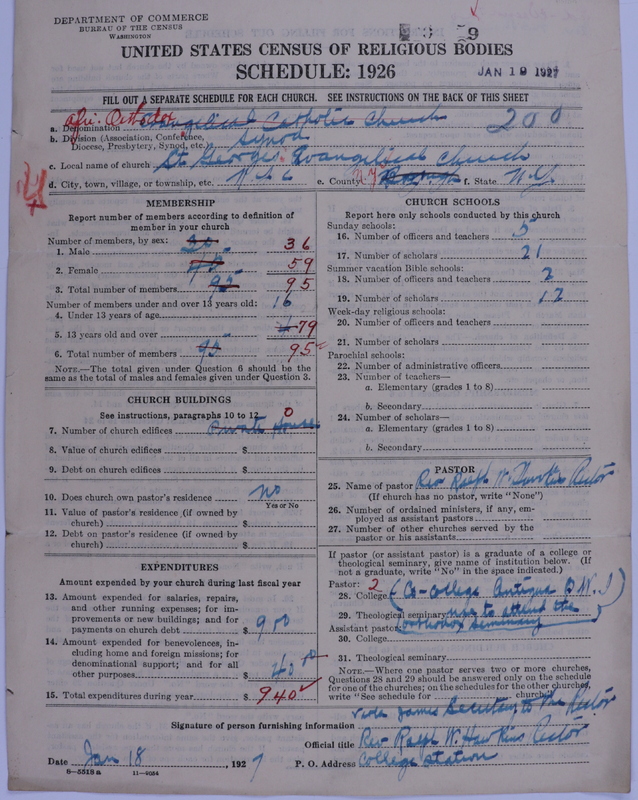 DEPARTMENT OF COMMERCE
BUREAU OF THE CENSUS
WASHINGTON
UNITED STATES CENSUS OF RELIGIOUS BODIES
SCHEDULE: 1926
JAN 19 1927
FILL OUT A SEPARATE SCHEDULE FOR EACH CHURCH. SEE INSTRUCTIONS ON THE BACK OF THIS SHEET
Afri. Orthodox
a. Denomination Evangelical Catholic Church 200
b. Division (Association, Conference, Diocese, Presbytery, Synod, etc.) Synod
c. Local name of church St. Georges Evangelical Church
d. City, town, village, or township, etc. N.Y.C e. County N.Y f. State N.Y.
MEMBERSHIP
Report number of members according to definition of
member in your church
Number of members, by sex:
1. Male 36
2. Female 59
3. Total number of members 95 95
Number of members under and over 13 years old:
4. Under 13 years of age 16
5. 13 years old and over 79
6. Total number of members 95 95
NOTE.—The total given under Question 6 should be the
same as the total of males and females given under Question 3.
CHURCH BUILDINGS
See instructions, paragraphs 10 to 12
7. Number of church edifices Private House 0
8. Value of church edifices $
9. Debt on church edifices $
10. Does church own pastor's residence No
Yes or No
11. Value of pastor's residence (if owned by
church) $
12. Debt on pastor's residence (if owned by
church) $
EXPENDITURES
Amount expended by your church during last fiscal year
13. Amount expended for salaries, repairs,
and other running expenses; for im-
provements or new buildings; and for
payments on church debt $ 900
14. Amount expended for benevolences, in-
cluding home and foreign missions; for
denominational support; and for all
other purposes $ 40 00
15. Total expenditures during year $ 940
CHURCH SCHOOLS
Report here only schools conducted by this church
Sunday schools:
16. Number of officers and teachers 5
17. Number of scholars 21
Summer vacation Bible schools:
18. Number of officers and teachers 2
19. Number of scholars 12
Week-day religious schools:
20. Number of officers and teachers
21. Number of scholars
Parochial schools:
22. Number of administrative officers
23. Number of teachers—
a. Elementary (grades 1 to 8)
b. Secondary
24. Number of scholars—
a. Elementary (grades 1 to 8)
b. Secondary
PASTOR
25. Name of pastor Rev Ralph W. Hawkins Rector
(If church has no pastor, write "None")
26. Number of ordained ministers, if any, em-
ployed as assistant pastors
27. Number of other churches served by the
pastor or his assistants
If pastor (or assistant pastor) is a graduate of a college or
theological seminary, give name of institution below. (If
not a graduate, write "No" in the space indicated.)
Pastor: 2
28. College (Co-College Antigua B.W.I)
29. Theological seminary now to attend the
orthodox seminary
Assistant pastor:
30. College
31. Theological seminary
NOTE.—Where one pastor serves two or more churches,
Questions 28 and 29 should be answered only on the schedule
for one of the churches; on the schedules for the other churches,
write "See schedule for church."
James Secretary to the Rector
Signature of person furnishing information
Official title Rev Ralph W. Hawkins Rector
Date Jan 18, 1927 P. O. Address College Station
8—5518a 11—9084